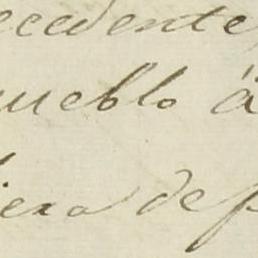 ecedente
ueblo á
iera de